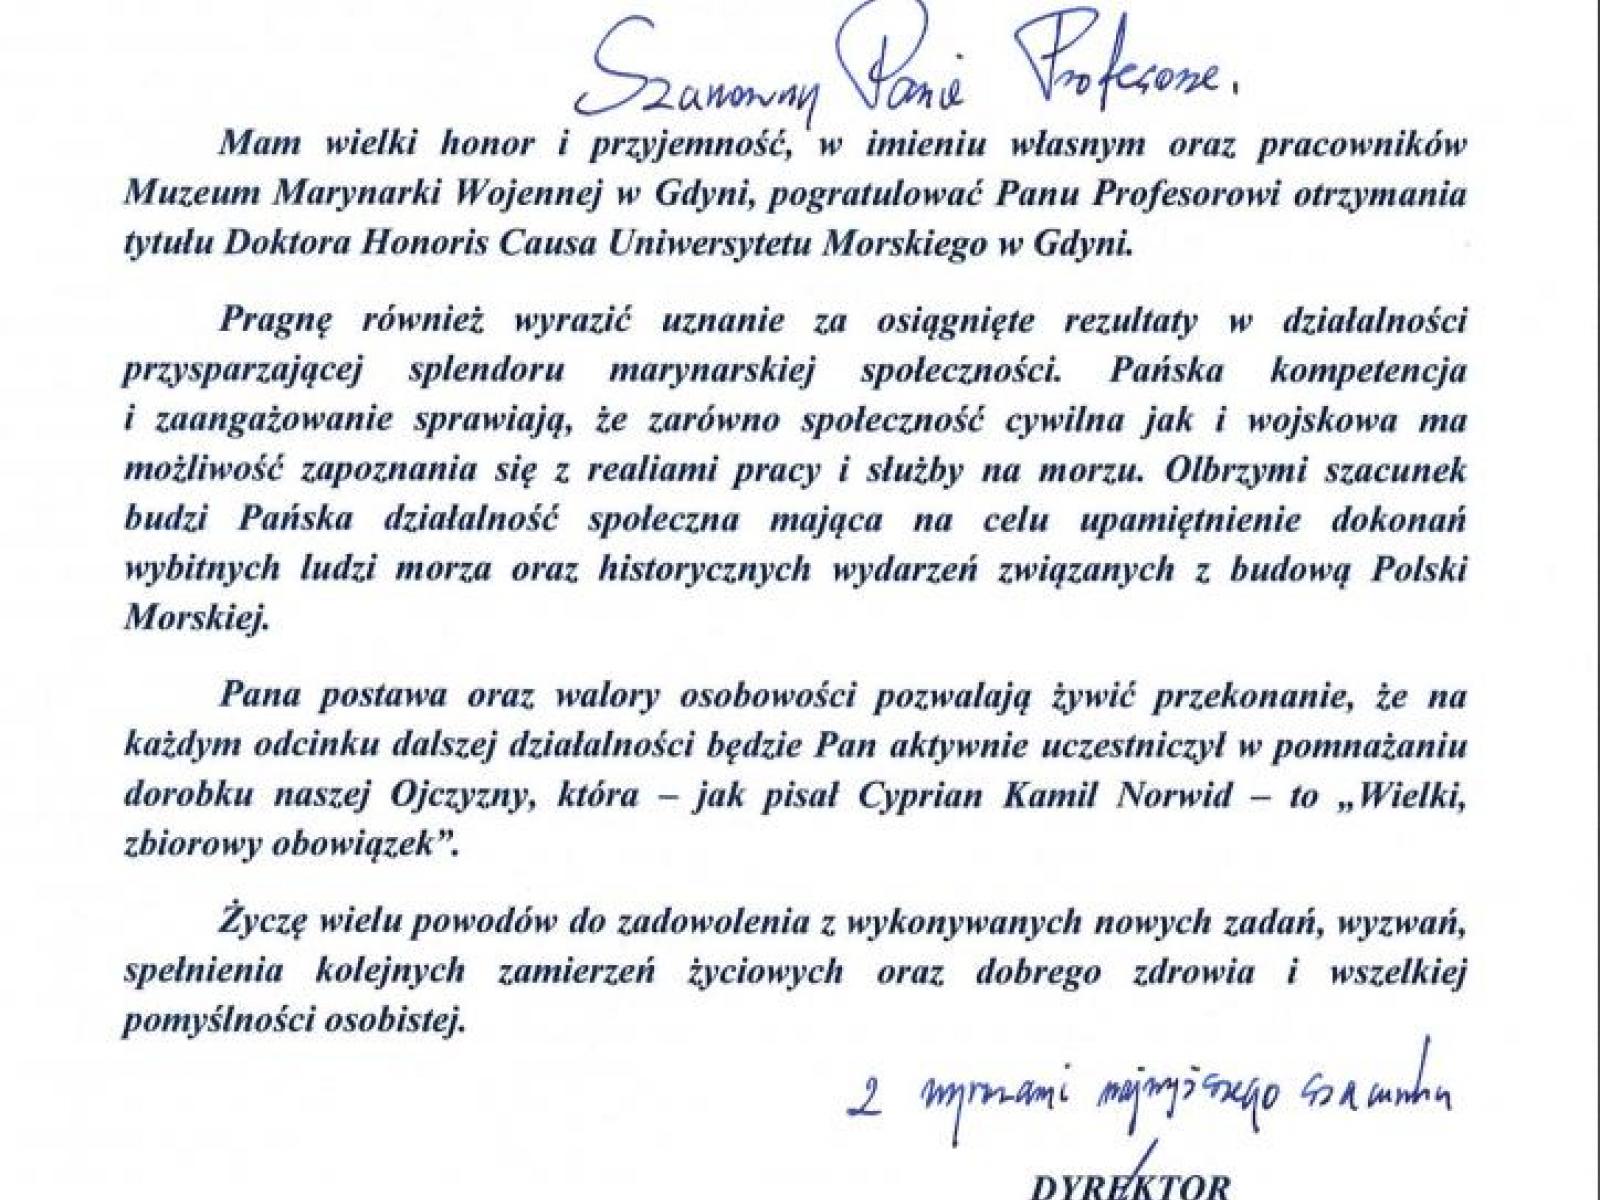 Szanowny Panie Profesorze.
Mam wielki honor i przyjemność, w imieniu własnym oraz pracowników
Muzeum Marynarki Wojennej w Gdyni, pogratulować Panu Profesorowi otrzymania
tytułu Doktora Honoris Causa Uniwersytetu Morskiego w Gdyni.
Pragnę również wyrazić uznanie za osiągnięte rezultaty w działalności
przysparzającej splendoru marynarskiej społeczności. Pańska kompetencja
i zaangażowanie sprawiają, że zarówno społeczność cywilna jak i wojskowa ma
możliwość zapoznania się z realiami pracy i służby na morzu. Olbrzymi szacunek
budzi Pańska działalność społeczna mająca na celu upamiętnienie dokonań
wybitnych ludzi morza oraz historycznych wydarzeń związanych z budową Polski
Morskiej.
Pana postawa oraz walory osobowości pozwalają żywić przekonanie, że na
każdym odcinku dalszej działalności będzie Pan aktywnie uczestniczył w pomnażaniu
dorobku naszej Ojczyzny, która – jak pisał Cyprian Kamil Norwid – to „Wielki,
zbiorowy obowiązek”.
Życzę wielu powodów do zadowolenia z wykonywanych nowych zadań, wyzwań,
spełnienia kolejnych zamierzeń życiowych oraz dobrego zdrowia i wszelkiej
pomyślności osobistej.
Z wyrazami najwyższego szacunku
DYREKTOR